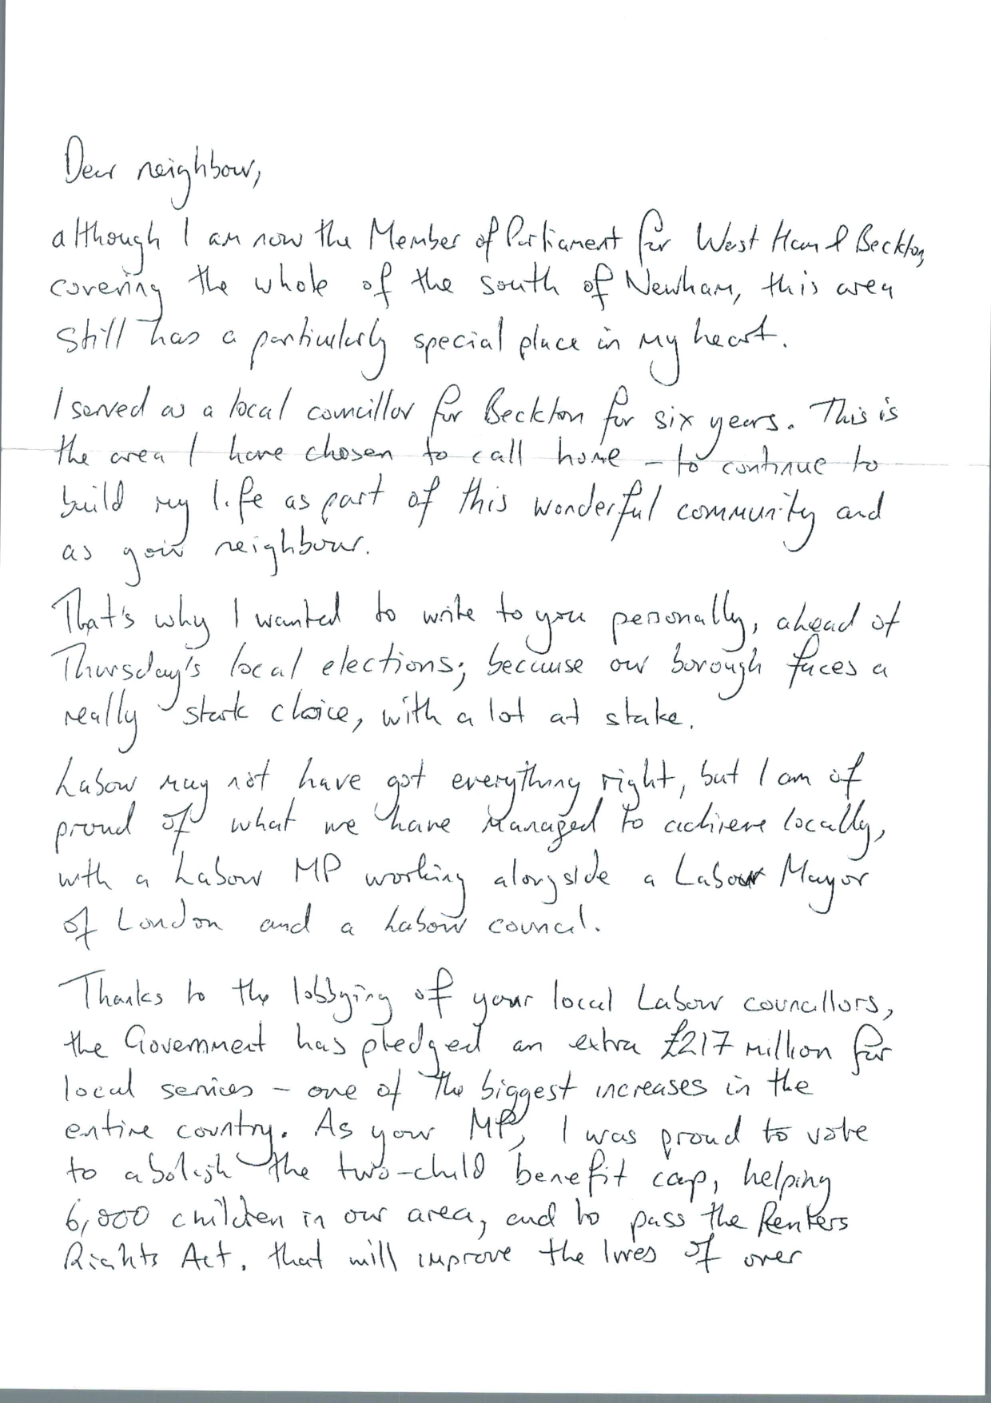 Dear neighbour,
although I am now the Member of Parliament for West Ham & Beckton,
covering the whole of the south of Newham, this area
still has a particularly special place in my heart.
I served as a local councillor for Beckton for six years. This is
the area I have chosen to call home – to continue to
build my life as part of this wonderful community and
as your neighbour.
That's why I wanted to write to you personally, ahead of
Thursday's local elections; because our borough faces a
really stark choice, with a lot at stake.
Labour may not have got everything right, but I am of
proud of what we have managed to achieve locally,
with a Labour MP working alongside a Labour Mayor
of London and a Labour council.
Thanks to the lobbying of your local Labour councillors,
the Government has pledged an extra £217 million for
local services – one of the biggest increases in the
entire country. As your MP, I was proud to vote
to abolish the two-child benefit cap, helping
6,000 children in our area, and to pass the Renters
Rights Act. that will improve the lives of over